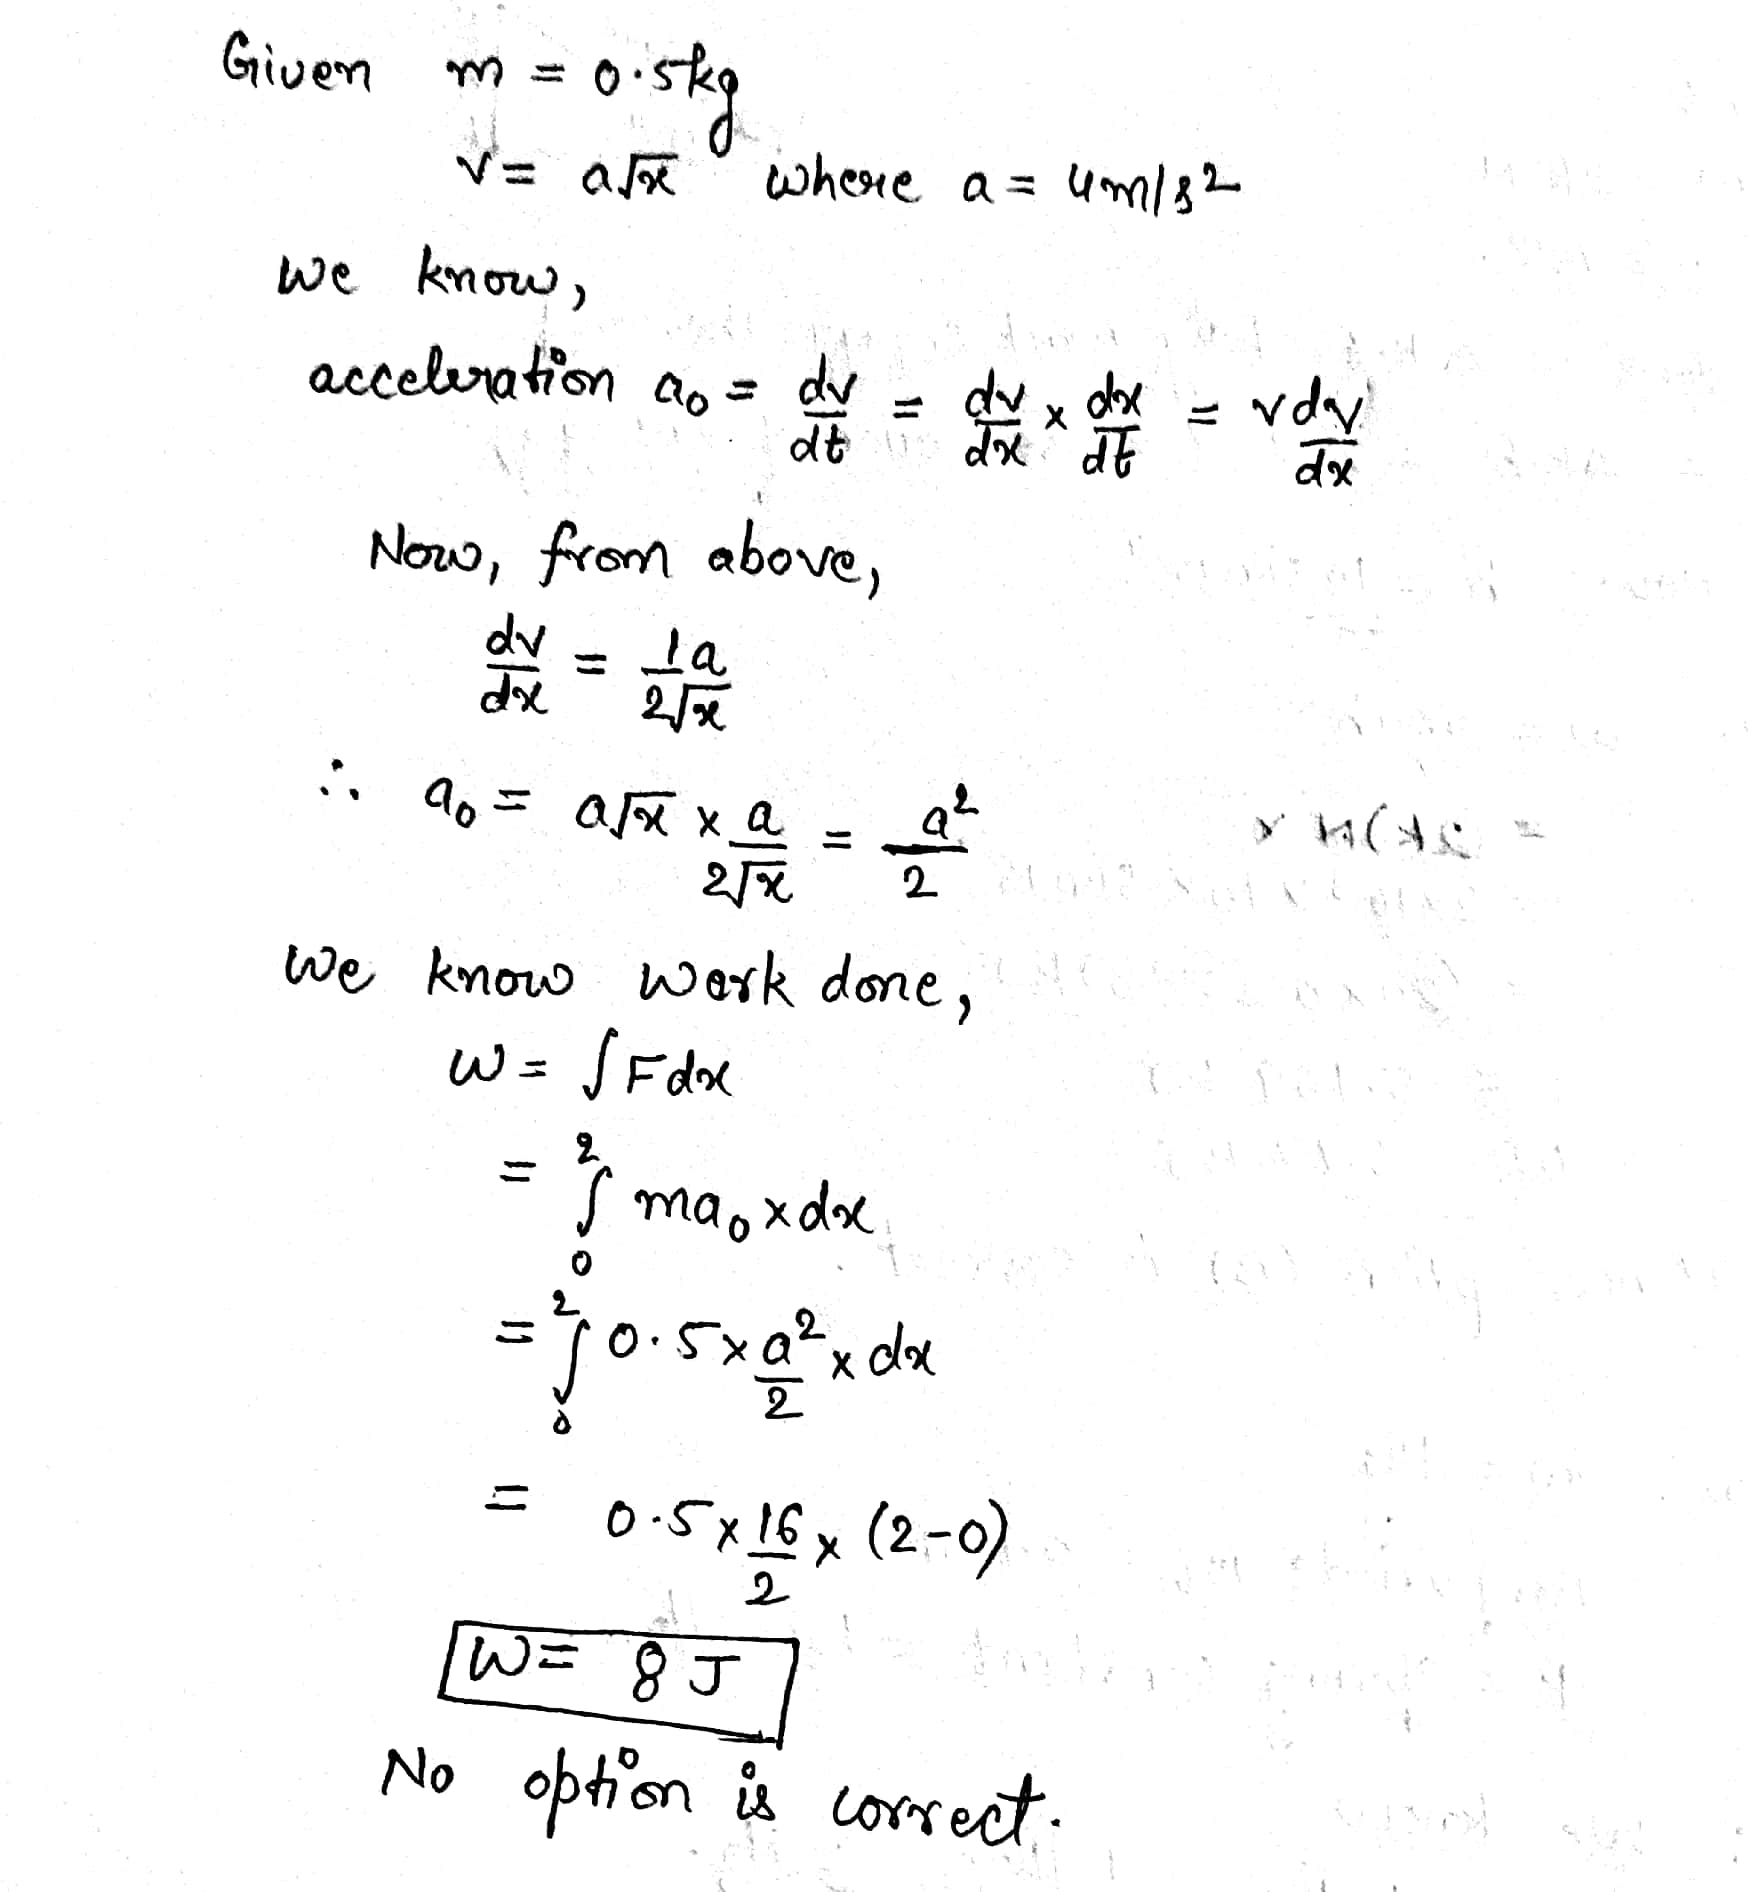 Given m = 0.5kg
v = a√x where a = 4m/s²
We know,
acceleration a₀ = dv/dt = dv/dx × dx/dt = vdv/dx
Now, from above,
dv/dx = 1a/2√x
∴ a₀ = a√x × a/2√x = a²/2
We know work done,
W = ∫Fdx
= ∫₀² ma₀ × dx
= ∫₀² 0.5 × a²/2 × dx
= 0.5 × 16/2 × (2-0)
W = 8 J
No option is correct.